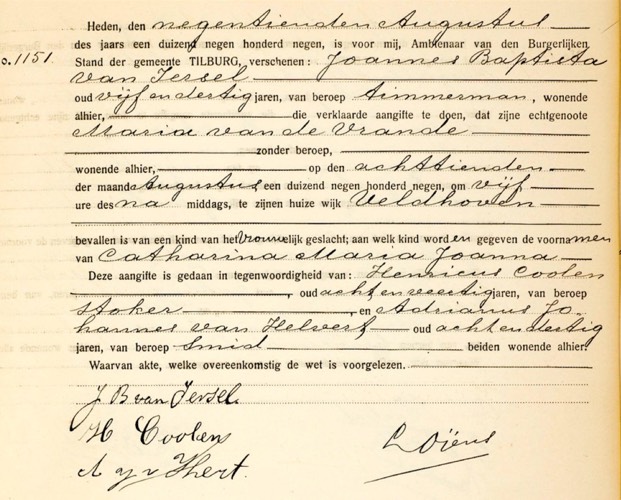 Heden, den negentienden Augustus
des jaars een duizend negen honderd negen, is voor mij, Ambtenaar van den Burgerlijken
o. 1151. Stand der gemeente TILBURG, verschenen: Joannes Baptista
van Iersel
oud vijf en dertig jaren, van beroep timmerman, wonende
alhier, die verklaarde aangifte te doen, dat zijne echtgenoote
Maria van de Vrande
zonder beroep,
wonende alhier, op den achttienden
der maand Augustus een duizend negen honderd negen, om vijf
ure des na middags, te zijnen huize wijk Veldhoven
bevallen is van een kind van het vrouwelijk geslacht; aan welk kind worden gegeven de voornamen
van Catharina Maria Joanna
Deze aangifte is gedaan in tegenwoordigheid van: Henricus Coolen
, oud acht en veertig jaren, van beroep
stoker, en Adrianus Jo-
hannes van Helvert oud acht en dertig
jaren, van beroep smid beiden wonende alhier.
Waarvan akte, welke overeenkomstig de wet is voorgelezen.
J B van Iersel.
H Coolen
A J v Hert.